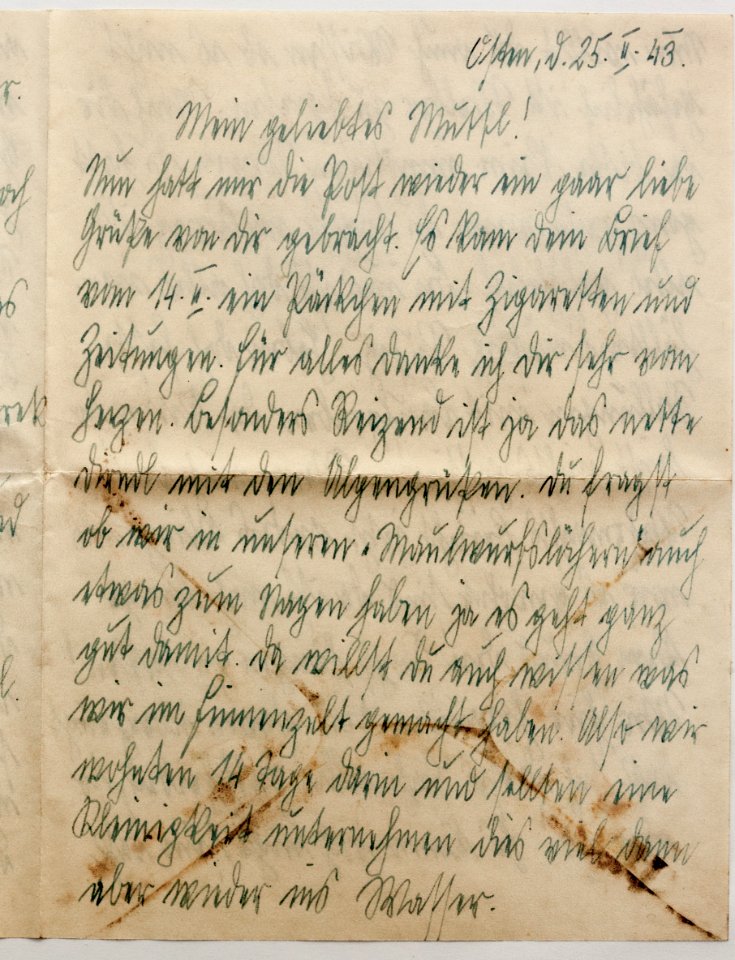 r.
och
es
rek
d
l.
Osten, d. 25. II. 43.
Mein geliebtes Muttl!
Nun hatt mir die Post wieder ein paar liebe
Grüße von dir gebracht. Es kam dein Brief
vom 14. II. ein Päckchen mit Zigaretten und
Zeitungen. Für alles danke ich dir sehr von
Herzen. Besonders Reizend ist ja das nette
Dirndl mit den Alpengrüßen. Du fragst
ob wir in unseren „Maulwurfslöchern" auch
etwas zum Nagen haben ja es geht ganz
gut damit. Da willst du auch wissen was
wir im Finnenzelt gemacht haben. Also wir
wohnten 14 Tage darin und sollten eine
Kleinigkeit unternehmen dies viel dann
aber wieder ins Wasser.